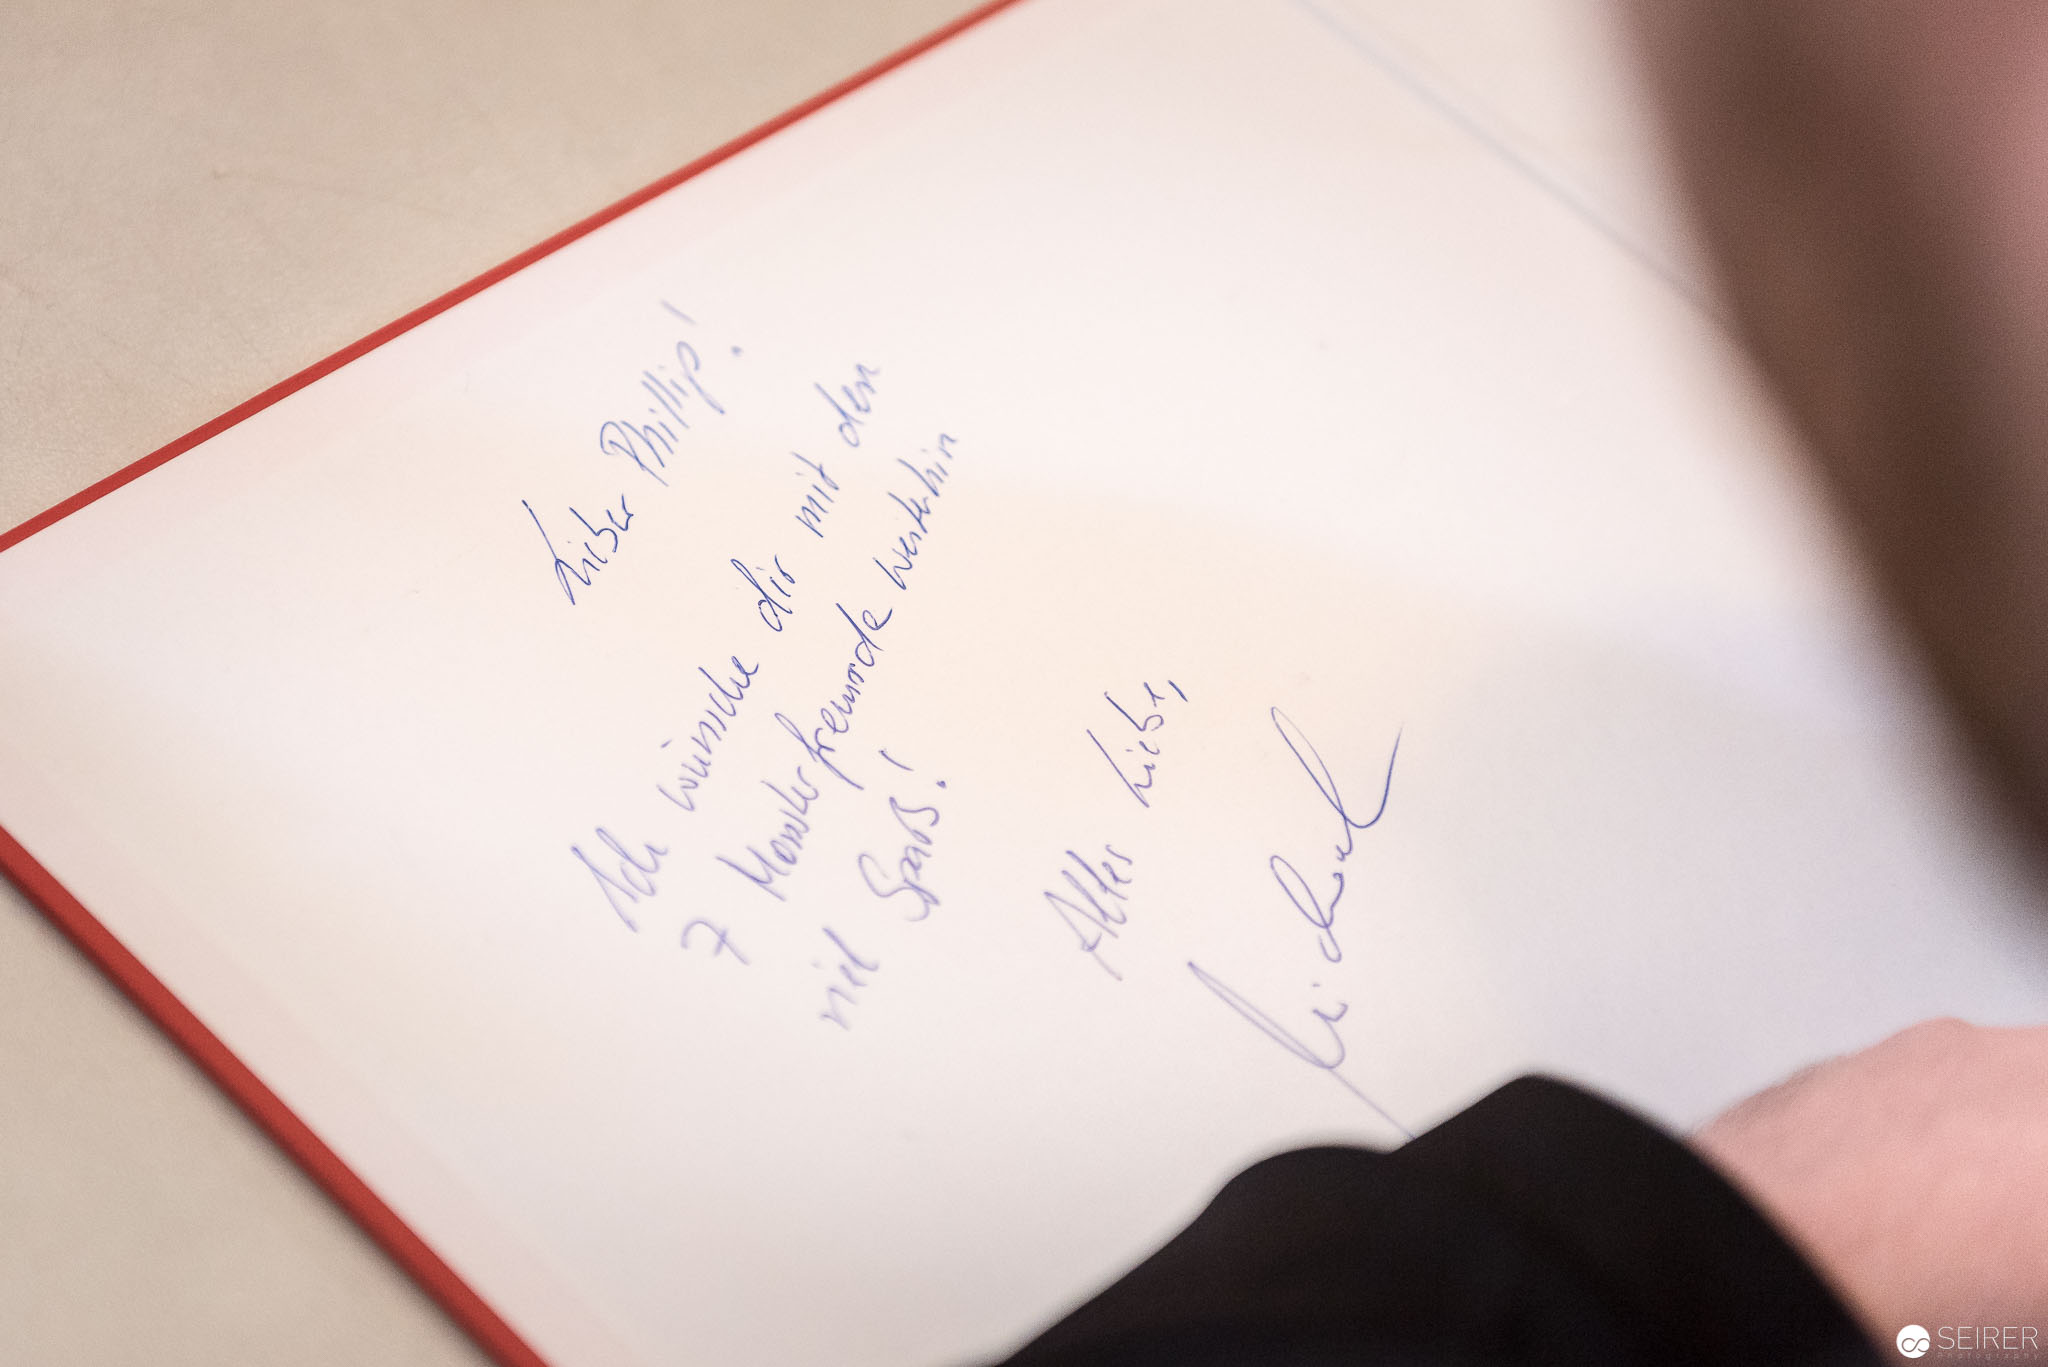 Lieber Phillip!
Ich wünsche dir mit den
7 Monsterfreunde weiterhin
viel Spaß!
Alles Liebe,
Michael
SEIRER
Photography